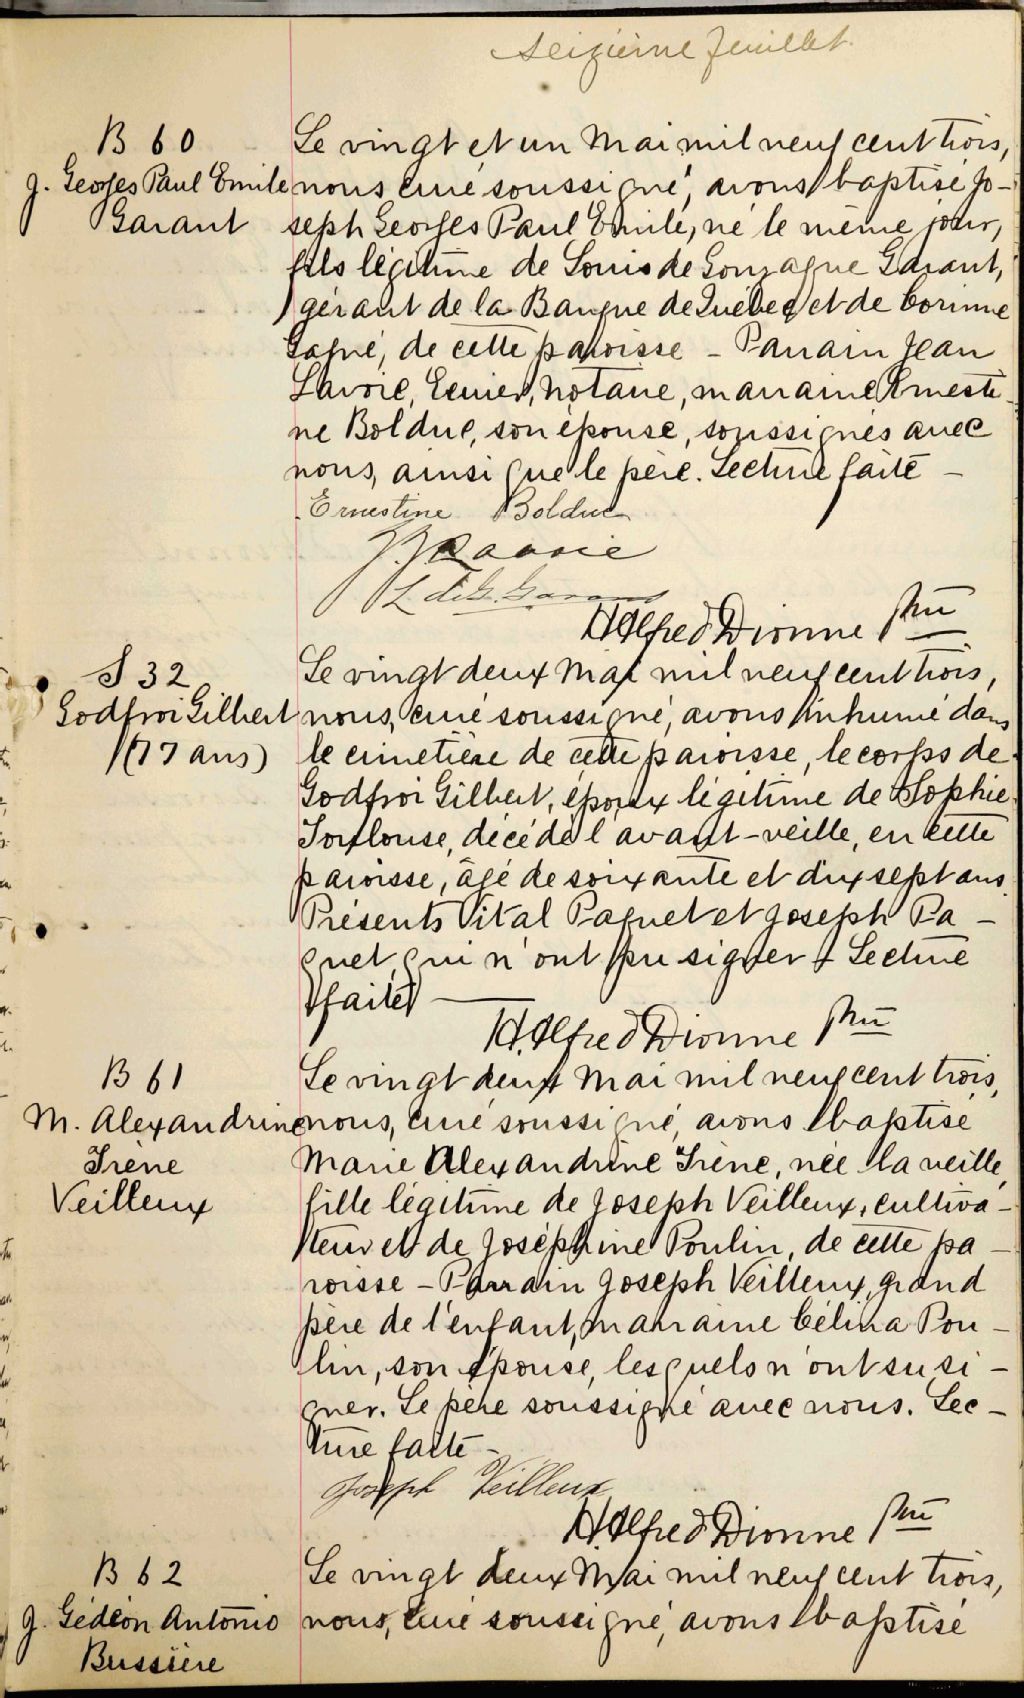 seizième feuillet.
B 60
J. Georges Paul Emile
Garant
Le vingt et un Mai mil neuf cent trois,
nous curé soussigné, avons baptisé Jo-
seph Georges Paul Emile, né le même jour,
fils légitime de Louis de Gonzague Garant,
gérant de la Banque de Québec et de Corinne
Gagné, de cette paroisse - Parrain Jean
Lavoie, Ecuier, notaire, marraine Ernesti-
ne Bolduc, son épouse, soussignés avec
nous, ainsi que le père. Lecture faite -
Ernestine Bolduc
Lavoie
L de G. Garant
H. Alfred Dionne Ptre
S 32
Godfroi Gilbert
(77 ans)
Le vingt deux Mai mil neuf cent trois,
nous, curé soussigné, avons inhumé dans
le cimetière de cette paroisse, le corps de
Godfroi Gilbert, époux légitime de Sophie
Toulouse, décédé l'avant-veille, en cette
paroisse, âgé de soixante et dix sept ans.
Présents Vital Paquet et Joseph Pa-
quet qui n'ont pu signer - Lecture
faite
H. Alfred Dionne Ptre
B 61
M. Alexandrine
Irène
Veilleux
Le vingt deux Mai mil neuf cent trois,
nous, curé soussigné, avons baptisé
Marie Alexandrine Irène, née la veille,
fille légitime de Joseph Veilleux, cultiva-
teur et de Joséphine Poulin, de cette pa-
roisse - Parrain Joseph Veilleux, grand
père de l'enfant, marraine Célina Pou-
lin, son épouse, lesquels n'ont su si-
gner. Le père soussigné avec nous. Lec-
ture faite -
Joseph Veilleux
H. Alfred Dionne Ptre
B 62
J. Gédéon Antonio
Bussière
Le vingt deux Mai mil neuf cent trois,
nous, curé soussigné, avons baptisé